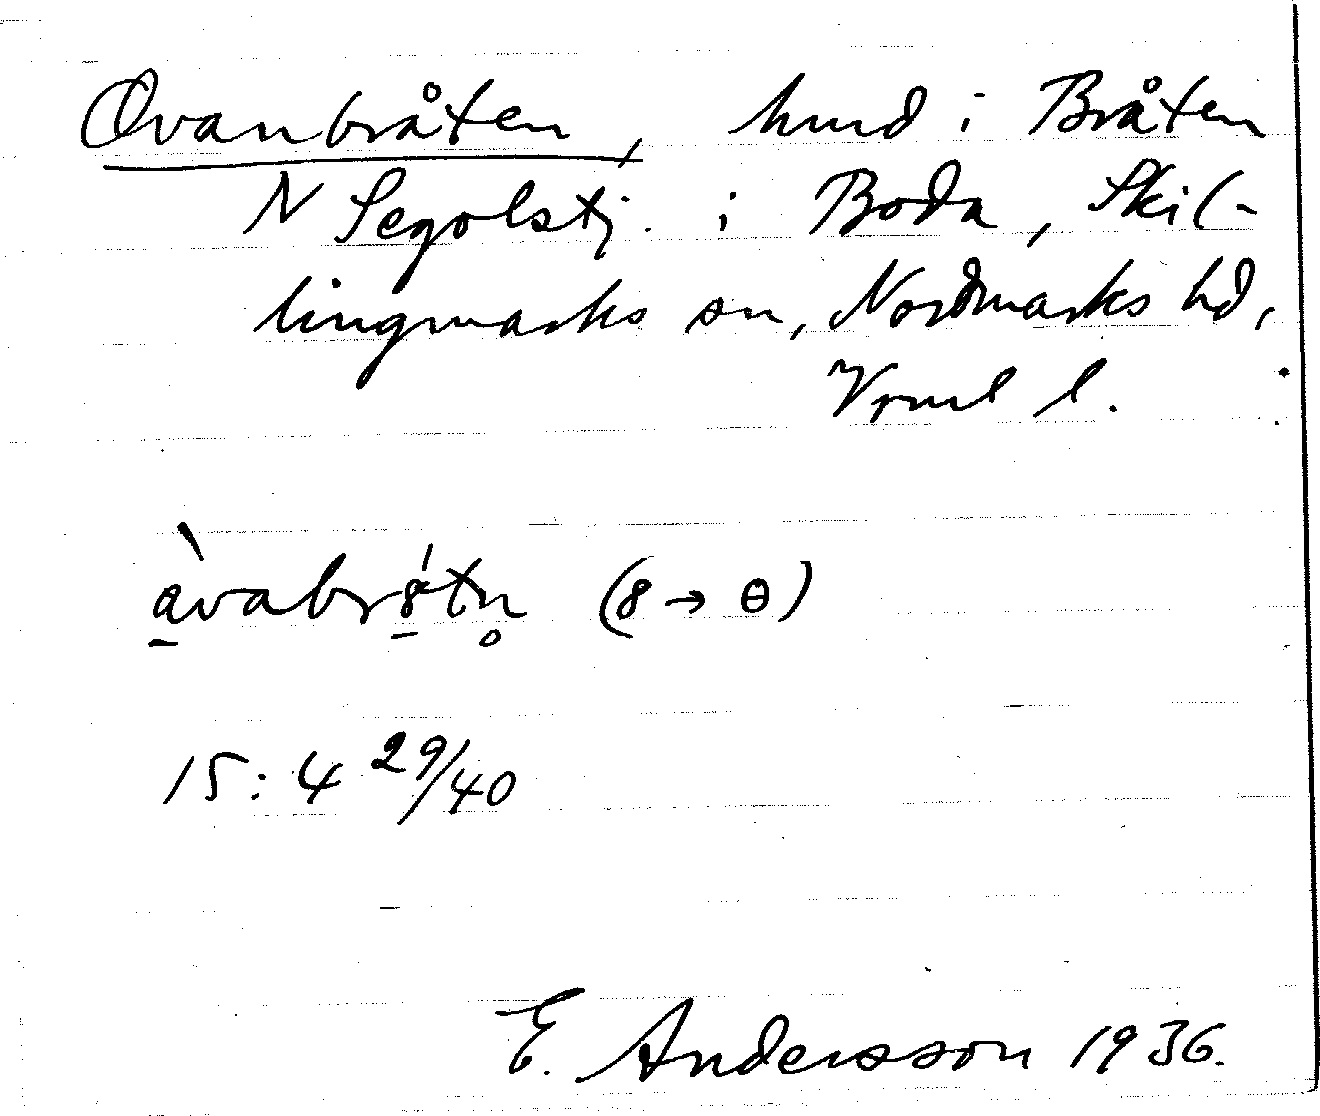 Ovanbråten, hmd i Bråten
N Segolstj. i Boda, Skil-
lingmarks sn, Nordmarks hd,
Vrml l.
àvabrśtn̥ (8 → ɵ)
15:4 29/40
E. Andersson 1936.